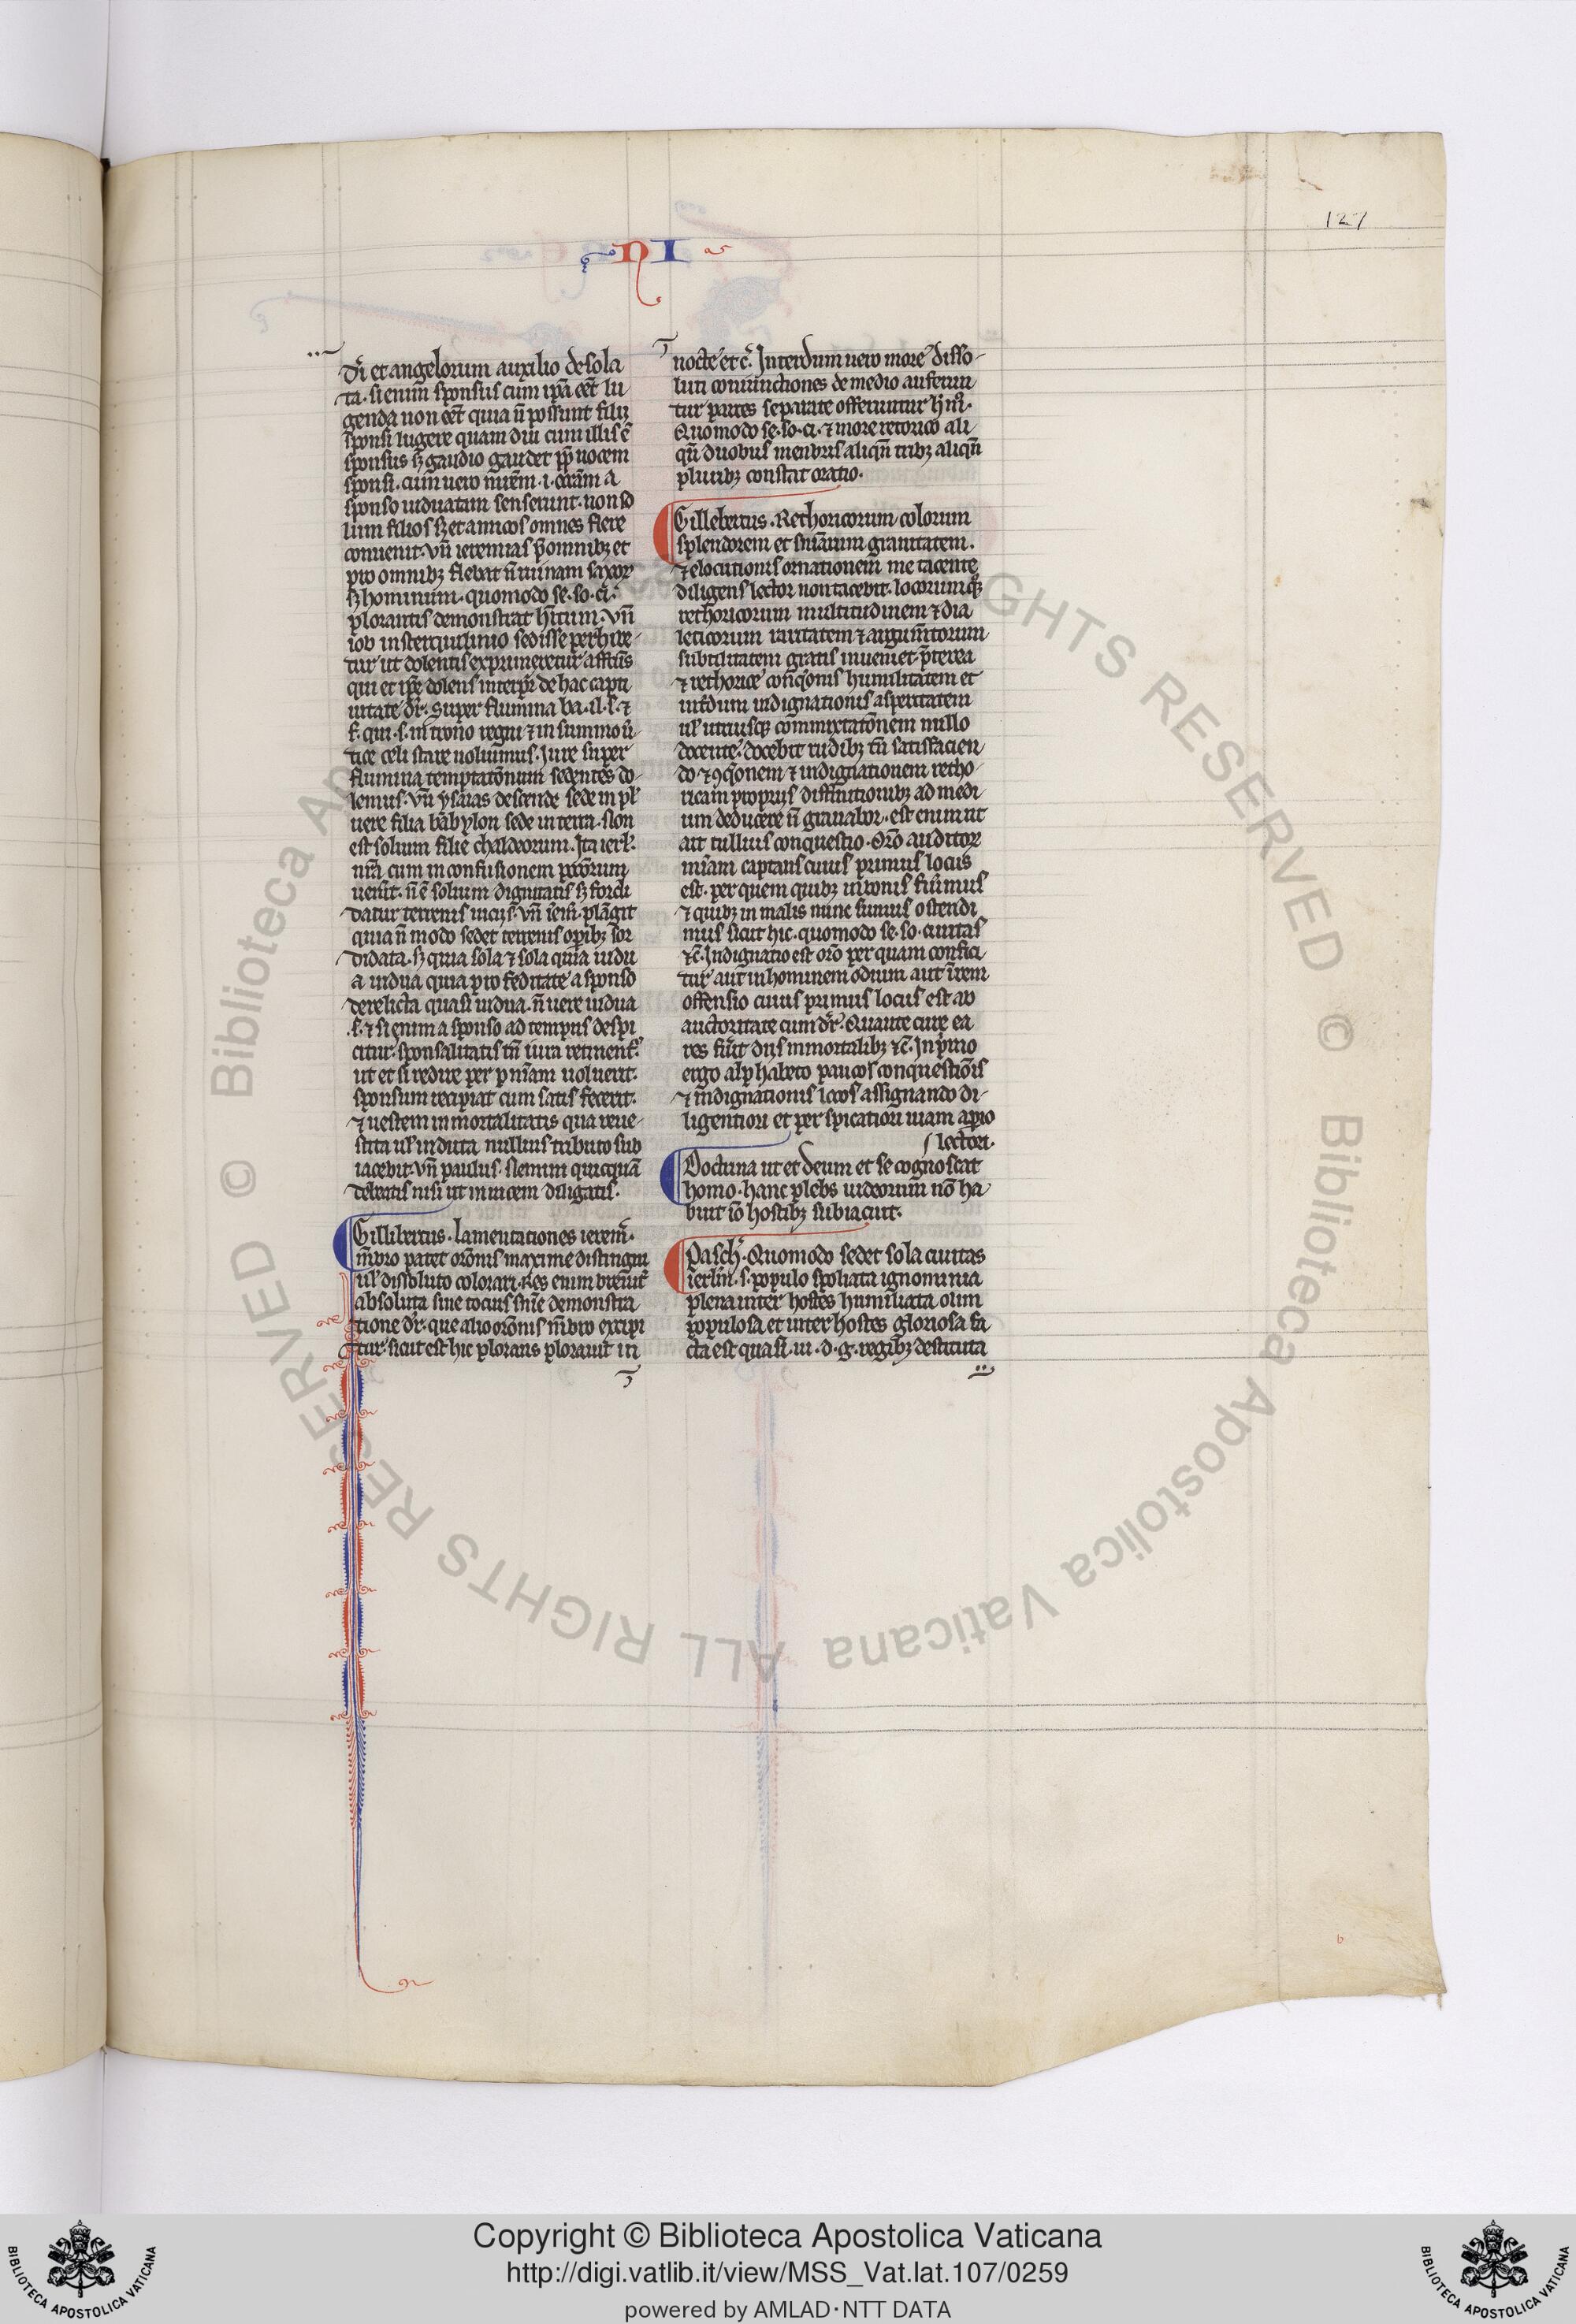 127
NI
d̄i et angelorum auxilio desola
ta. si enim sponsus cum ip̄a eēt lu
genda non eēt quia n̄ possunt filii
sponsi lugere quam diu cum illis ē
sponsus sꝫ gaudio gaudet pp̄ uocem
sponsi. cum uero
sponso uiduatam senserunt. non so
lum filios sꝫ et amicos omnes flere
conuenit. vn̄ ieremias p̄ omnibꝫ et
pro omnibꝫ flebat n̄ ruinam saxoꝝ
sꝫ hominum. quomodo se. so. ci.
plorantis demonstrat h̄itum. vn̄
iob in sterquilinio sedisse perhibe
tur ut dolentis exprimeretur affc̄us
qui et ip̄e dolens de hac capti
uitate dr̄. Super flumina ba. il. s. ⁊
f. qui. s. in trono regni ⁊ in summo ū
tice celi stare noluimus. Iure super
flumina temptatōnum sedentes do
lemus. vn̄ ysaias descende sede in pl̄
uere filia babylon sede in terra. Non
est solium filie chaldeorum. Ita ierl̄.
nr̄a cum in confusionem
uen̄it. n̄ ē solium dignitatis sꝫ sordi
datur terrenis uiciis. vn̄ ieм̄. plāgit
quia n̄ modo sedet terrenis opibꝫ sor
didata. sꝫ quia sola ⁊ sola quia uidu
a uidua quia pro feditate a sponso
derelicta quasi uidua. n̄ uere uidua
.s. ⁊ si enim a sponso ad tempus despi
citur. sponsalitatis tn̄ iura retinent̄.
ut et si redire per pniam̄ uoluerit.
sponsum recipiat cum satis fecerit.
⁊ uestem inmortalitatis qua reue
stita ul̄ induta nullius tributo sub
iacebit. vn̄ paulus. Nemini quicquā
debeatis nisi ut inuicem diligatis.
Gillibertus. Lamentationes ierem̄.
m̄bro patet orōnis maxime distingui
ul̄ dissoluto colorari. Res enim breuit̄
absoluta sine tocius sn̄ie demonstra
tione dr̄. que alio orōnis m̄bro excipi
tur. sicut est hic plorans plorauit in
nocte et c̄. Interdum uero more disso
luti coniunctiones de medio auferun
tur partes separate offeruntur
Quomodo se. so. ci. ⁊ more retorico ali
qn̄ duobus menbris aliqn̄ tribꝫ aliqn̄
pluribꝫ constat oratio.
Gillebertus. Rethoricorum colorum
splendorem et sn̄iarum grauitatem.
⁊ elocutionis ornationem me tacente
diligens lector non tacebit. locorumqꝫ
rethoricorum multitudinem ⁊ dia
leticorum raritatem ⁊ argum̄torum
subtilitatem gratis inueniet. p̄terea
⁊ rethorice conq̄onis humilitatem et
int̄dum indignationis asperitatem
ul̄ utriusqꝫ commixtatōnem nullo
docente. docebit rudibꝫ tn̄ satisfacien
do ⁊ ꝯq̄onem ⁊ indignationem retho
ricam propriis diffinitionibꝫ ad medi
um deducere n̄ grauabor. est enim ut
ait tullius conquestio. Orō auditoꝝ
mīam captans cuius primus locus
est. per quem quibꝫ in bonis fūimus
⁊ quibꝫ in malis nunc sumus ostendi
mus sicut hic. quomodo se. so. ciuitas
⁊c̄. Indignatio est orō per quam confici
tur aut in hominem odium aut ī rem
offensio cuius primus locus est ab
auctoritate cum dr̄. Quante cure ea
res fūit diis inmortalibꝫ ⁊c̄. In primo
ergo alphabeto paucos conquestiōis
⁊ indignationis locos assignando di
ligentiori et perspicatiori uiam aperio
lectori.
Doctrina ut et deum et se cognoscat
homo. hanc plebs iudeorum nō ha
buit iō hostibꝫ subiacuit.
Pasch̄. Quomodo sedet sola ciuitas
ierl̄m. s. populo spoliata ignominia
plena inter hostes humiliata olim
populosa et inter hostes gloriosa fa
cta est quasi. ui. d. g. regibꝫ destituta
b
© Biblioteca Apostolica Vaticana ALL RIGHTS RESERVED
Copyright © Biblioteca Apostolica Vaticana
http://digi.vatlib.it/view/MSS_Vat.lat.107/0259
powered by AMLAD・NTT DATA
BIBLIOTECA APOSTOLICA VATICANA
BIBLIOTECA APOSTOLICA VATICANA